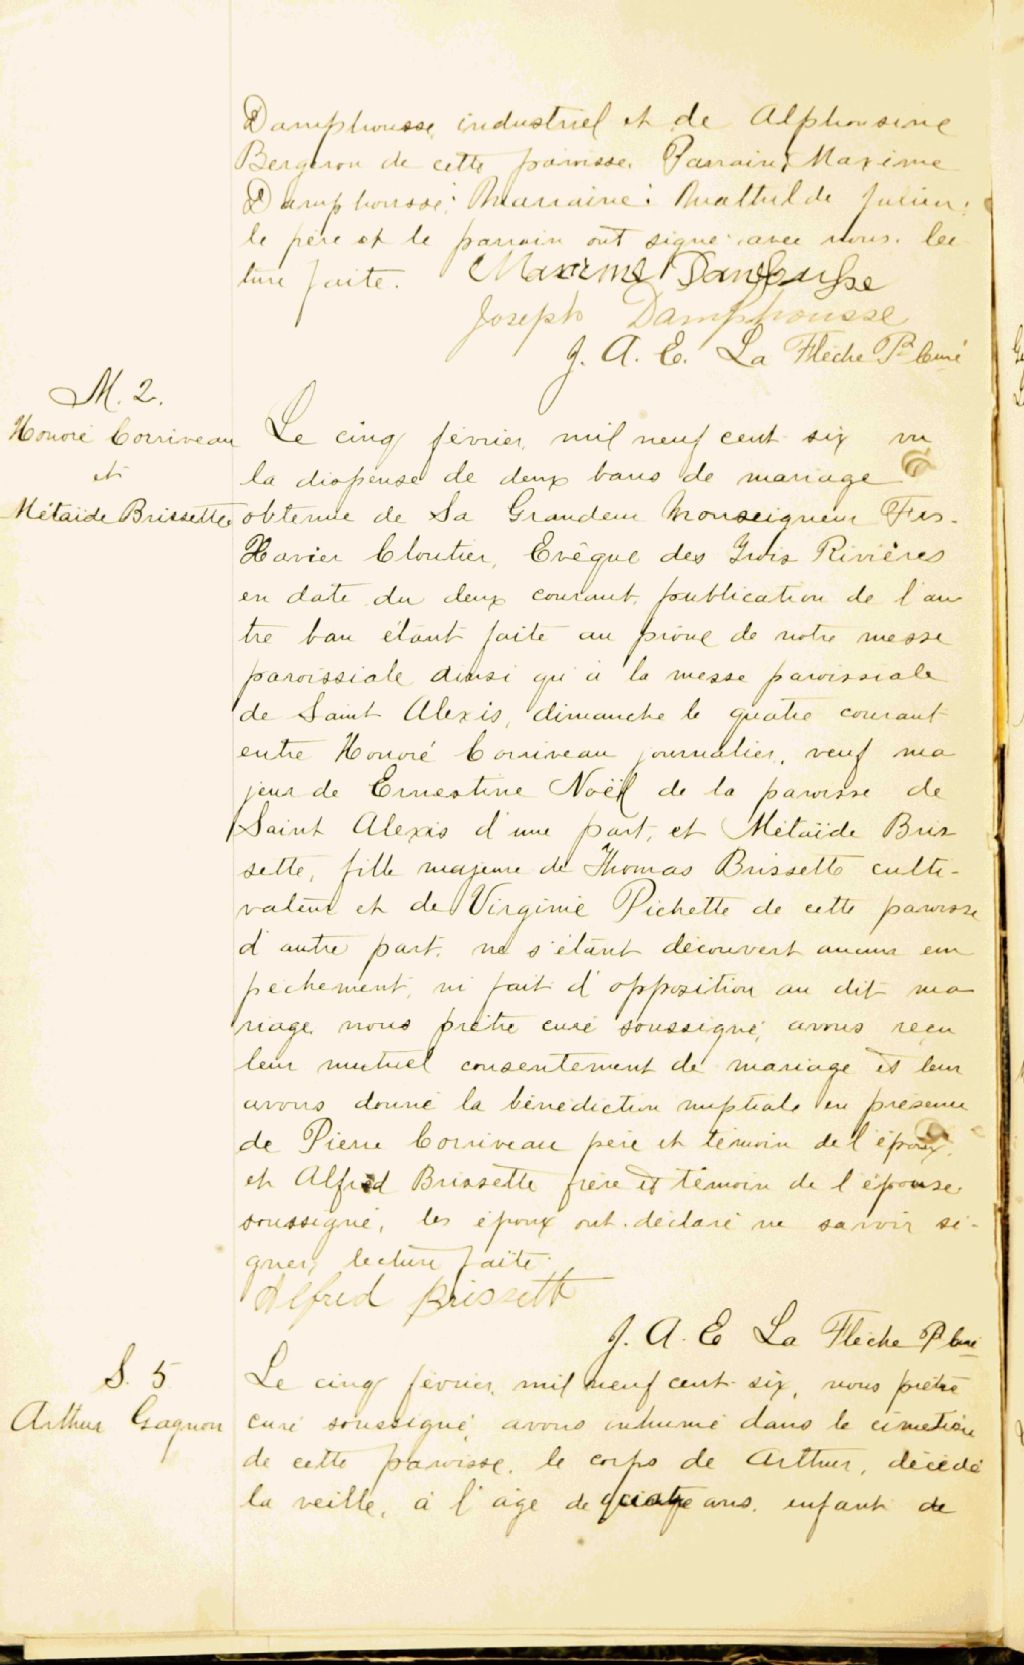 Damphousse, industriel et de Alphonsine
Bergeron de cette paroisse. Parrain: Maxime
Damphousse; Marraine: Mathilde Julien;
le père et le parrain ont signé avec nous. lec
ture faite. Maxime Damphousse
Joseph Damphousse
J. A. E. La Flèche Ptre Curé
M. 2.
Honoré Corriveau
et
Métaïde Brissette
Le cinq février, mil neuf cent six vu
la dispense de deux bans de mariage
obtenue de Sa Grandeur Monseigneur Frs.
Xavier Cloutier, Evêque des Trois Rivières
en date du deux courant, publication de l'au
tre ban étant faite au prône de notre messe
paroissiale ainsi qu'à la messe paroissiale
de Saint Alexis, dimanche le quatre courant
entre Honoré Corriveau journalier, veuf ma
jeur de Ernestine Noël de la paroisse de
Saint Alexis d'une part, et Métaïde Bris
sette, fille majeure de Thomas Brissette culti-
vateur et de Virginie Pichette de cette paroisse
d'autre part, ne s'étant découvert aucun em
pêchement, ni fait d'opposition au dit ma
riage nous prêtre curé soussigné, avons reçu
leur mutuel consentement de mariage et leur
avons donné la bénédiction nuptiale en présence
de Pierre Corriveau père et témoin de l'époux,
et Alfred Brissette frère et témoin de l'épouse
soussigné, les époux ont déclaré ne savoir si-
gner, lecture faite.
Alfred Brissette
J. A. E La Flèche Ptre Curé
S. 5
Arthur Gagnon
Le cinq février, mil neuf cent six, nous prêtre
curé soussigné, avons inhumé dans le cimetière
de cette paroisse, le corps de Arthur, décédé
la veille, à l'âge de quatre ans, enfant de